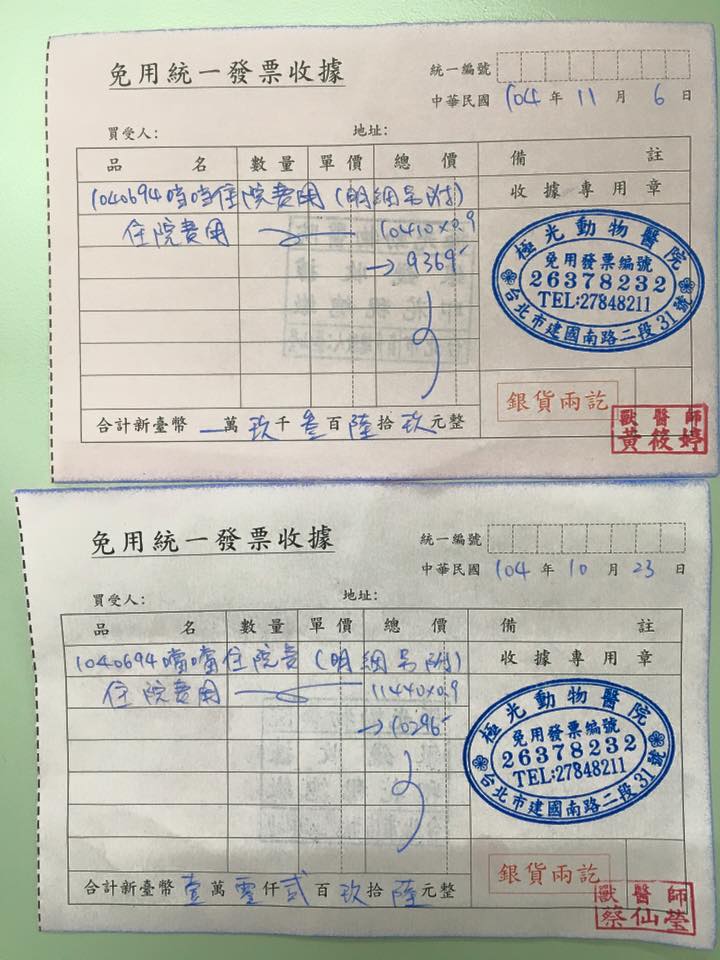 免用統一發票收據
統一編號
中華民國 104 年 11 月 6 日
買受人： 地址：
品名 數量 單價 總價 備註
1040694噹噹住院費用(明細另附) 收據專用章
住院費用 10410x0.9
→9369
極光動物醫院
免用發票編號
26378232
TEL:27848211
台北市建國南路二段31號
銀貨兩訖
合計新臺幣 萬 玖 千 叁 百 陸 拾 玖 元整
獸醫師
黃筱婷
免用統一發票收據
統一編號
中華民國 104 年 10 月 23 日
買受人： 地址：
品名 數量 單價 總價 備註
1040694噹噹住院費(明細另附) 收據專用章
住院費用 11440x0.9
→10296
極光動物醫院
免用發票編號
26378232
TEL:27848211
台北市建國南路二段31號
銀貨兩訖
合計新臺幣 壹 萬 零 仟 貳 百 玖 拾 陸 元整
獸醫師
蔡仙瑩